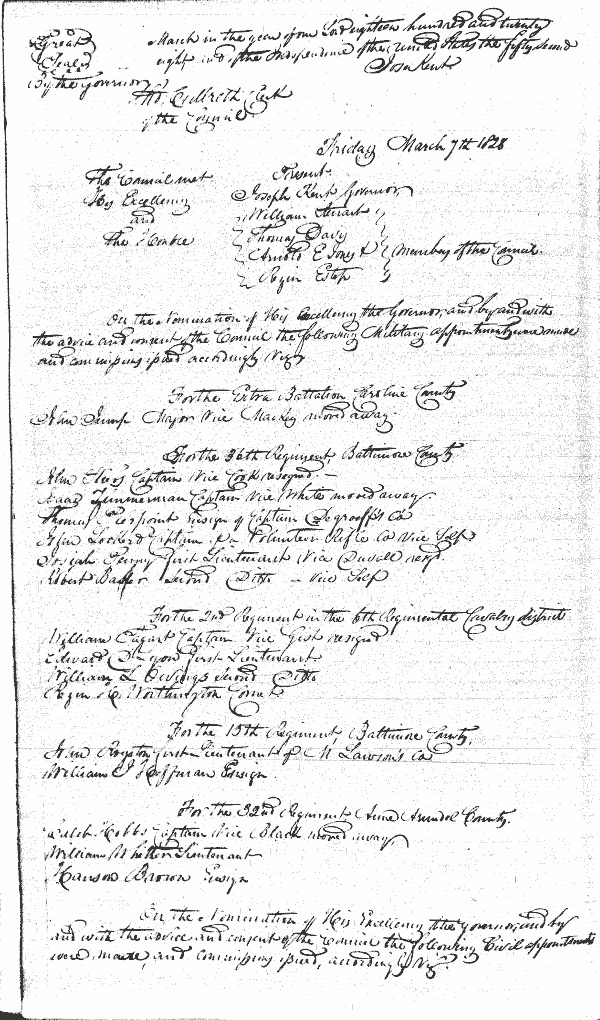 Great
Seal
March in the year of our Lord eighteen hundred and twenty
eight and of the Independence of the United States the fifty second
Jos: Kent
By the Governor
Clerk
of the Council
Friday March 7th 1828
The Council met
Present
His Excellency
Joseph Kent Governor
and
William Stewart
The Honble
Thomas Davis
Arnold E Jones & Members of the Council.
Rezin Estep
On the Nomination of His Excellency the Governor, and by and with
the advice and consent of the Council the following Military appointments were made
and commissions issued accordingly Viz
For the Extra Battalion Caroline County
John Jump Major Vice Mackey moved away
For the 36th Regiment, Baltimore County
John Captain Vice Cook resigned
Isaac Zimmerman Captain Vice White moved away
Thomas Pierpoint Ensign of Captain Co
John Lockerd Captain Volunteer Rifle Co Vice Self
Josiah First Lieutenant Vice Duvall resgd
Robert Second Ditto Vice Self
For the 2nd Regiment in the 6th Regimental Cavalry district
William Captain Vice Gist resigned
Edward First Lieutenant
William L Owings Second Ditto
Rezin H Worthington Cornet
For the 15th Regiment Baltimore County.
John Royston First Lieutenant of M Lawson's Co
William J Hoffman Ensign
For the 32nd Regiment Anne Arundel County.
Hobbs Captain Vice Black moved away,
William Lieutenant
Hanson Brown Ensign
On the Nomination of His Excellency the Governor, and by
and with the advice and consent of the Council the following Civil appointments
were made, and commissions issued, accordingly Viz.